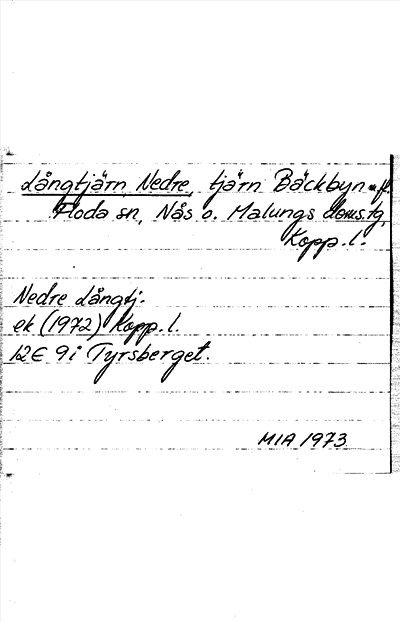 Långtjärn, Nedre, tjärn Bäckbyn m.fl.
Floda sn, Nås o. Malungs doms.tg,
Kopp. l.
Nedre Långtj.
ek (1972) Kopp. l.
12E 9i Tyrsberget.
MIA 1973